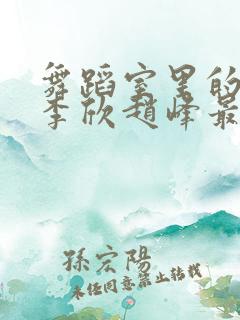 舞蹈室里的
李欣赵峰最
孫宏陽
未经同意禁止转载